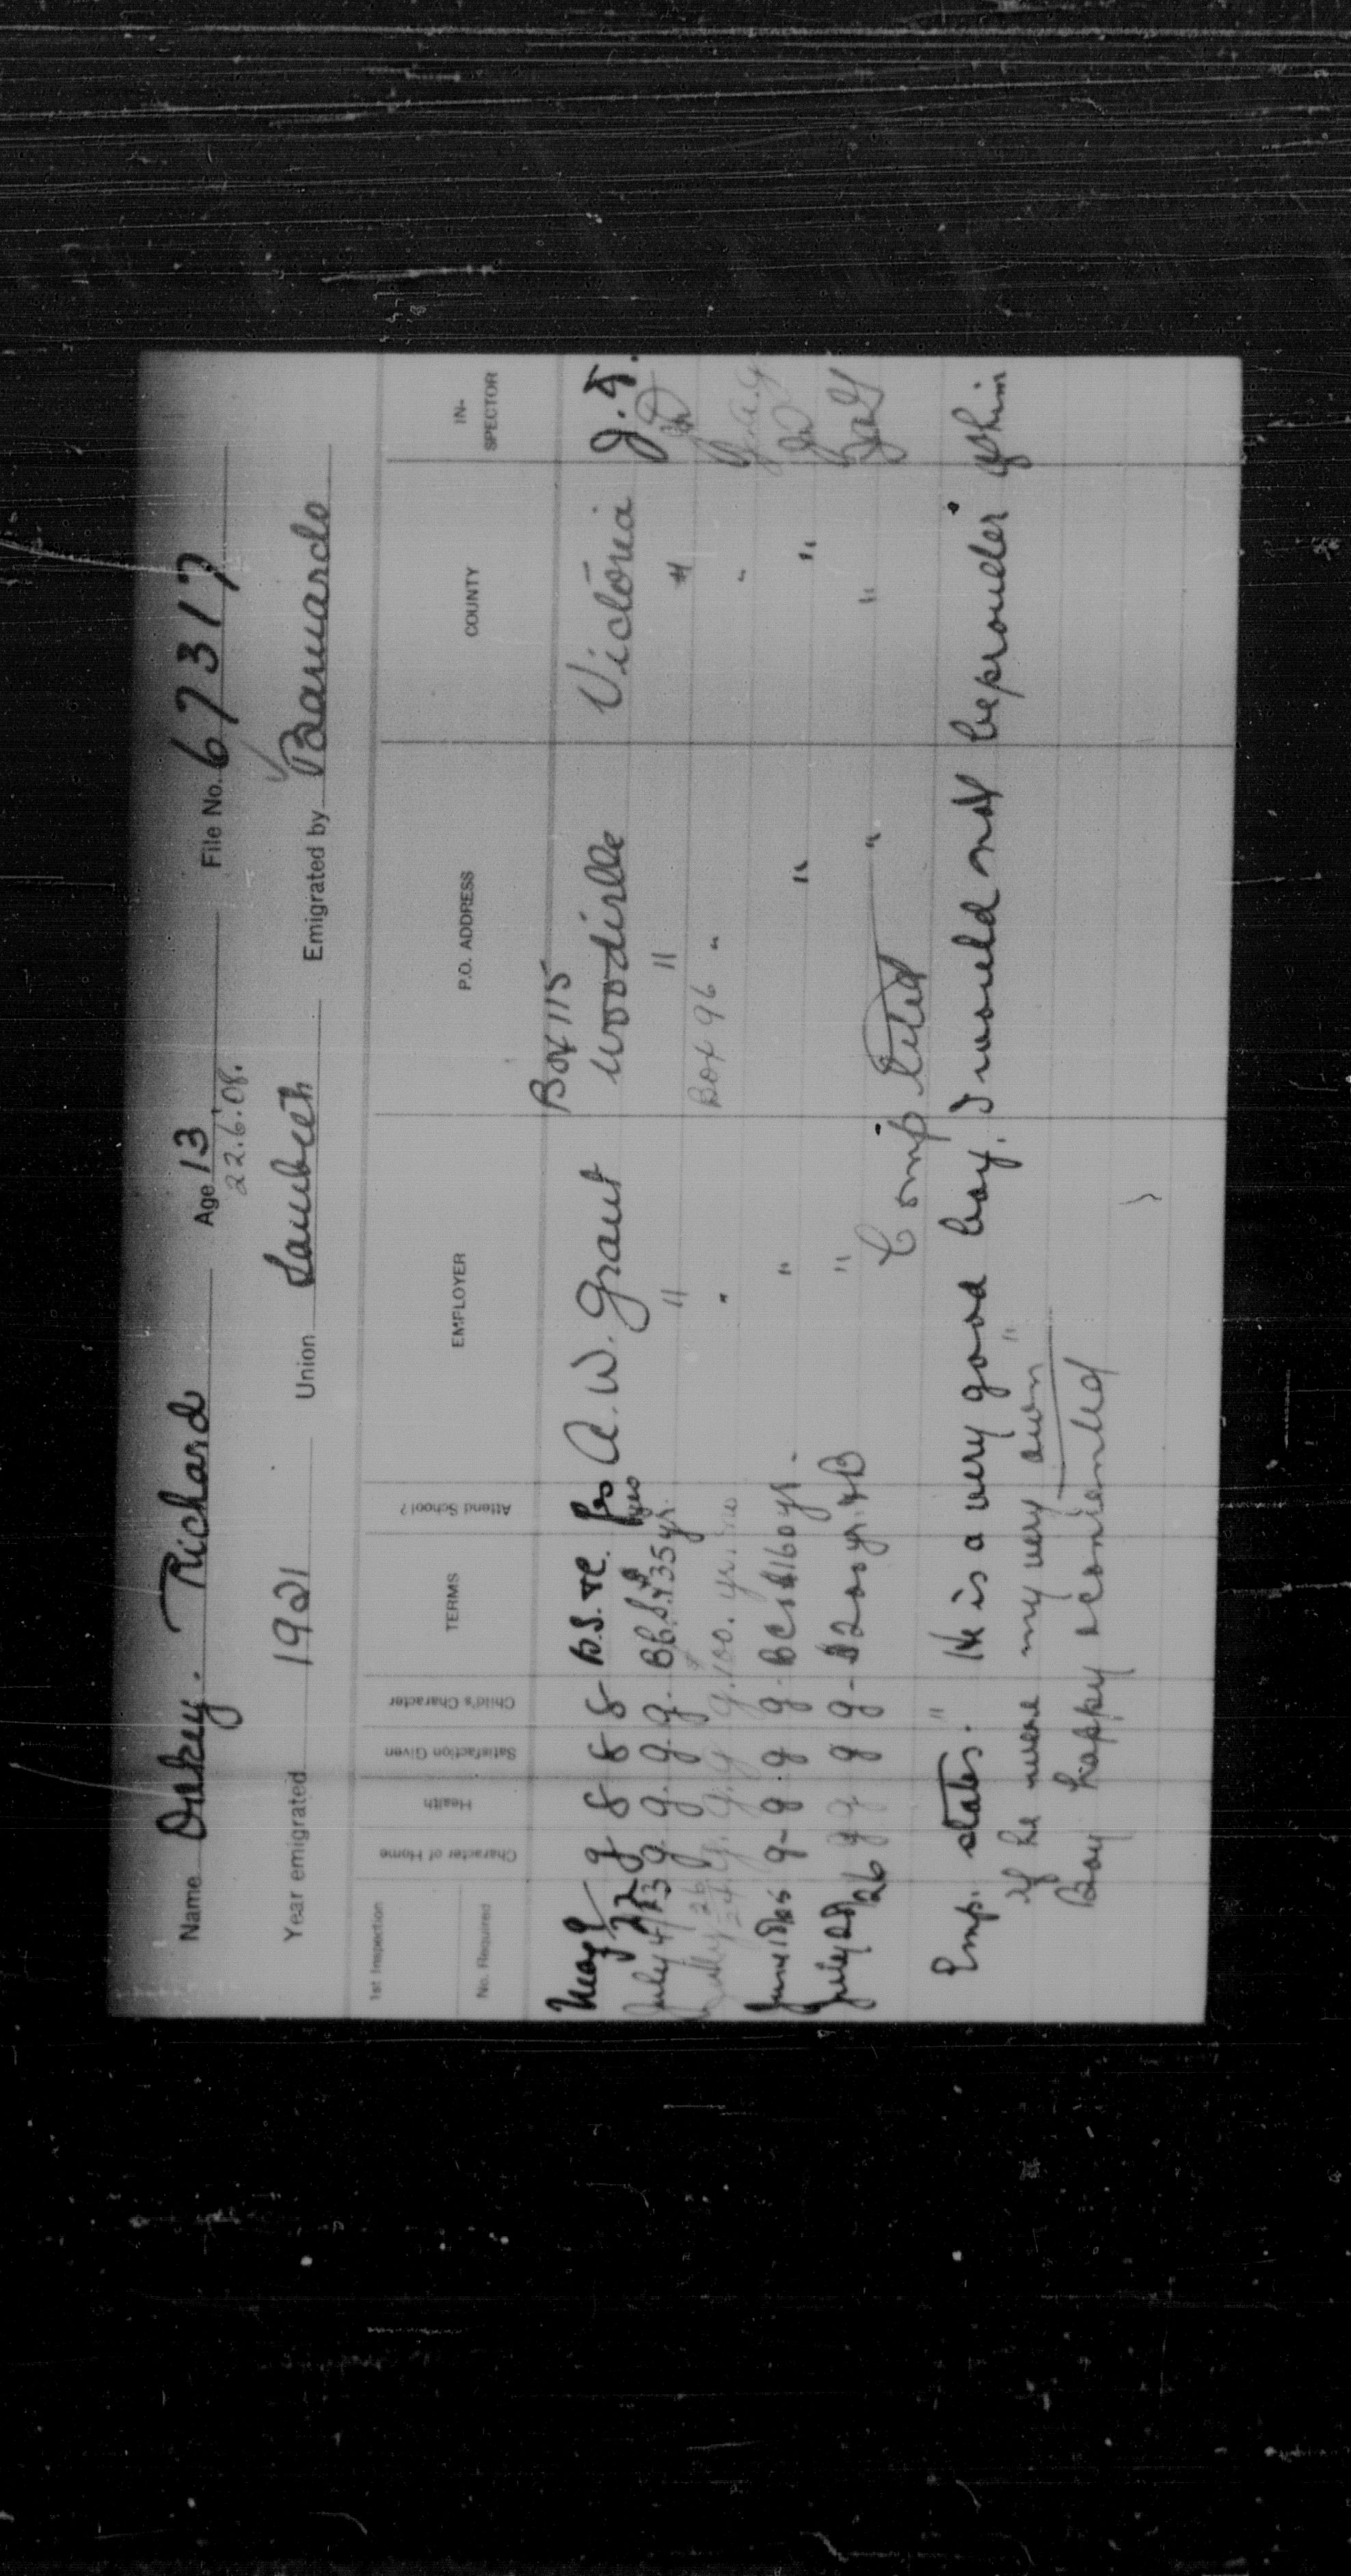 Name Oakey. Richard Age 13 File No. 67317
22.6.08.
Year emigrated 1921 Union Lambeth Emigrated by Barnardo
1st Inspection
No. Required
Character of Home
Health
Satisfaction Given
Child's Character
TERMS
Attend School?
EMPLOYER
P.O. ADDRESS
COUNTY
IN-
SPECTOR
Box 115
May 9 22 g g g g B.S. &C. yes A. W. Grant Woodville Victoria J. F.
July 4/23 g. g. g. g. B.C.S. & $35 yr. yes " " "
July 26 24 g. g. g g. 100. yr. no " Box 96 " "
June 18/25 g- g. g g. BC & $160 yr. " " "
July 28 26 g g g g- $200 yr. & B " " "
Completed
Emp. states. " He is a very good boy. I would not be prouder of him
if he were my very own "
Boy happy & contented